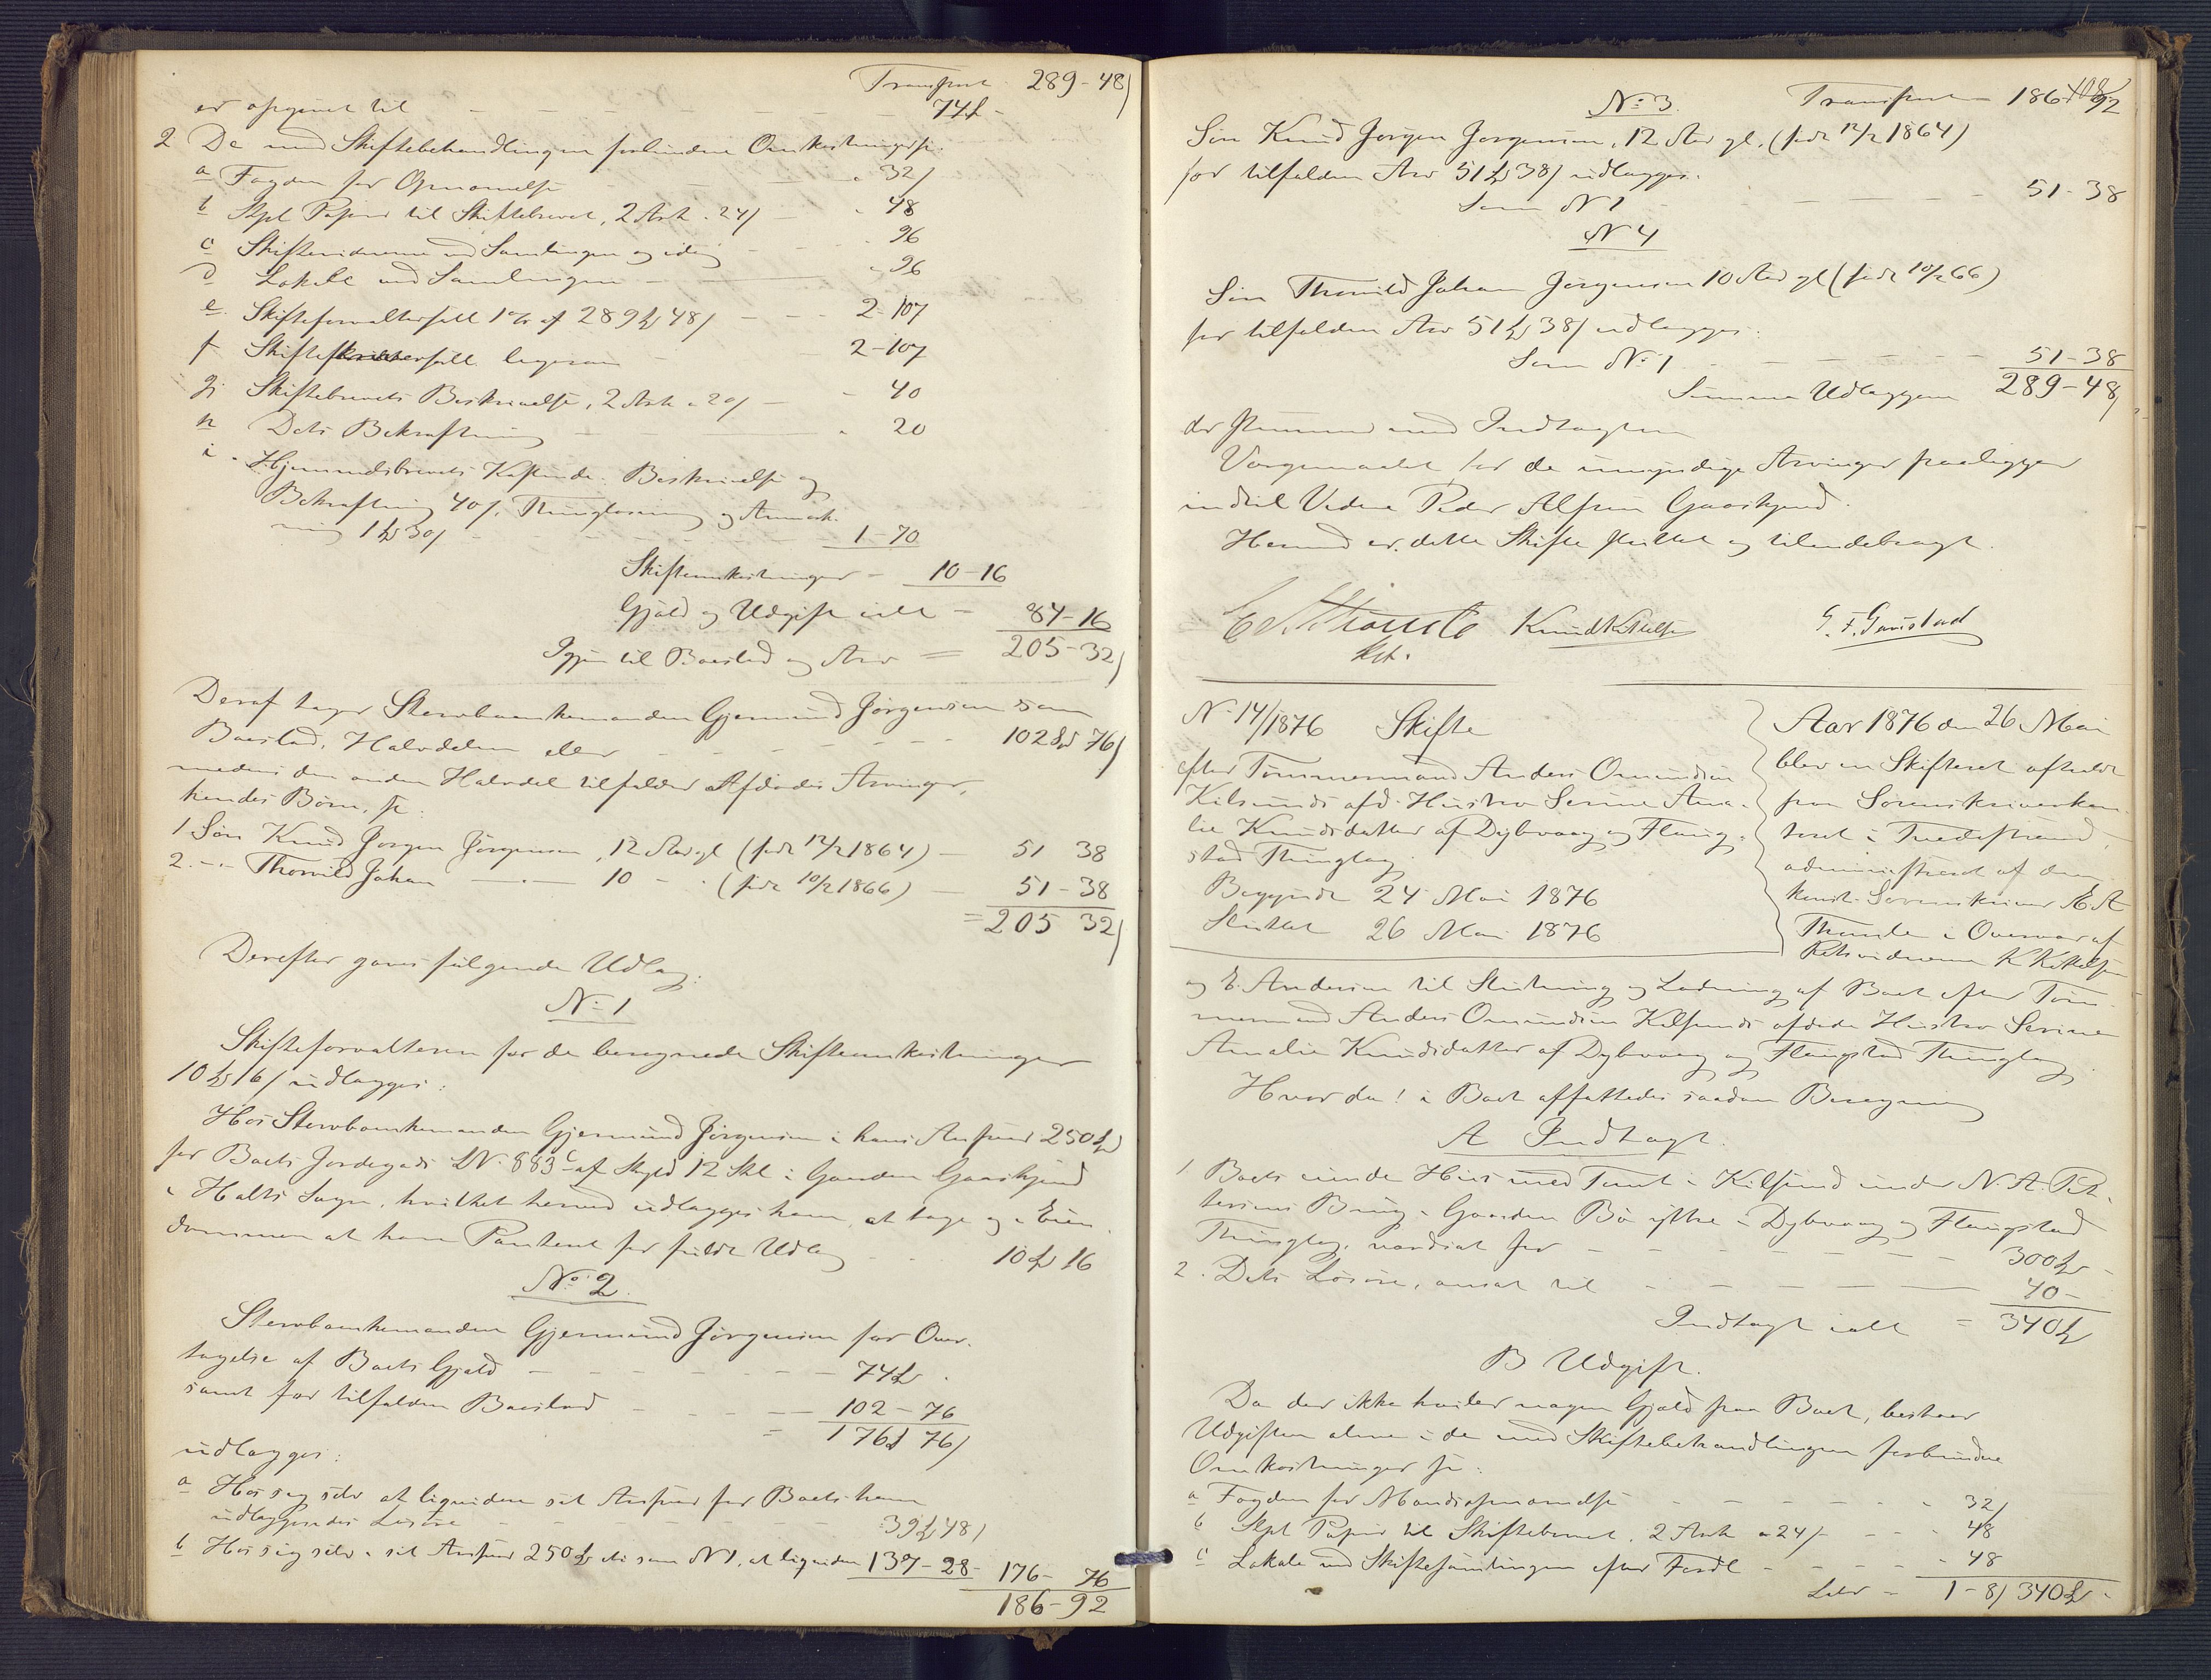 Transport 289-48/
er opgivet til - - - 74 Spd -
2 De med Skiftebehandlingen forbundne Omkostninger, s:
a Fogden for Opnævnelse - - - " 32/
b Stpl. Papir til Skiftebrevet, 2 Ark a 24/ - " 48
c Skiftevidnerne ved Samlingen og idag - - " 96
d Lokale ved Samlingen - - " 96
e. Skifteforvaltersall 1 % af 289 Spd 48/ - - 2-107
f Skifteskriversall ligesaa - 2-107
g. Skiftebrevets Beskrivelse, 2 Ark a 20/ - " 40
h Dets Bekræftning - - " 20
i. Hjemmelsbrevets Kostende: Beskrivelse og
Bekræftning 40/, Thinglæsning og Anmærk-
ning 1 Spd 30/ - - - 1-70
Skifteomkostninger - 10-16
Gjæld og Udgift ialt - 84-16
Igjen til Boeslod og Arv = 205-32/
Deraf tager Stervboenkemanden Gjermund Jørgensen som
Boeslod, Halvdelen eller - - - 102 Spd 76/
medens den anden Halvdel tilfalder Afdødes Arvinger,
hendes Børn, s:
1 Søn Knud Jørgen Jørgensen, 12 Aar gl (født 12/2 1864) - 51 38
2 -"- Thorvild Johan -"- 10 - " (født 10/2 1866) - 51-38
= 205 32/
Derefter gives følgende Udlæg:
No 1
Skifteforvalteren for de beregnede Skifteomkostninger
10 Spd 16/ udlægges:
Hos Stervboenkemanden Gjermund Jørgensen i hans Ansvar 250 Spd
for Boets Jordegods LN. 883 c af Skyld 12 Skl i Gaarden Gaaskjend
i Holts Sogn, hvilket herved udlægges ham, at tage og i Eien-
dommen at have Panteret for fuldt Udlæg - - 10 Spd 16
No 2
Stervboenkemanden Gjermund Jørgensen for Over-
tagelse af Boets Gjæld - - - 74 Spd -
samt for tilfalden Boeslod - - - 102-76
= 176 Spd 76/
udlægges:
a Hos sig selv at liquidere sit Ansvar for Boets ham
udlæggendes Løsøre - - - 39 Spd 48/
b Hos sig selv i sit Ansvar 250 Spd etc som N 1, at liquidere 137-28 176-76
186-92
Transport - 186-92
No 3.
Søn Knud Jørgen Jørgensen, 12 Aar gl. (født 12/2 1864)
for tilfalden Arv 51 Spd 38/ udlægges.
Som N 1 - - - 51-38
N 4
Søn Thorvild Johan Jørgensen 10 Aar gl (født 10/2 66)
for tilfalden Arv 51 Spd 38/ udlægges:
Som No 1 - - - 51-38
Summa Udlæggene 289-48/
der stemmer med Indtægten
Værgemaalet for de umyndige Arvinger paaligger
indtil Videre Peder Alfsen Gaaskjend.
Hermed er dette Skifte sluttet og tilendebragt.
E A Thomle Knud Kittelsen G. F. Gaustad
kst.
No 14/1876 Skifte
efter Tømmermand Anders Omundsen
Kilsunds afd. Hustro Serine Ama-
lie Knudsdatter af Dybvaag og Flaug-
stad Thinglag.
Begyndt 24 Mai 1876
Sluttet 26 Mai 1876
Aar 1876 den 26 Mai
blev en Skifteret afholdt
paa Sorenskriverkon-
toret i Tvedestrand,
administreret af den
konst. Sorenskriver E. A
Thomle i Overvær af
Retsvidnerne K Kittelsen
og E. Andersen til Slutning og Lodning af Boet efter Tøm-
mermand Anders Omundsen Kilsunds afdøde Hustro Serine
Amalie Knudsdatter af Dybvaag og Flaugstad Thinglag
Hvor da! i Boet affattedes saadan Beregning
A Indtægt.
1 Boets iende Hus med Tomt i Kilsund under N. A. Pet-
tersens Brug i Gaarden Bø ytre i Dybvaag og Flaugstad
Thinglag, vurderet for - - - 300 Spd -
2. Dets Løsøre, ansat til - - - 40 -
Indtægt ialt = 340 Spd
B Udgift.
Da der ikke hviler nogen Gjæld paa Boet, bestaar
Udgiften alene i de med Skiftebehandlingen forbundne
Omkostninger s:
a Fogden for Mandsopnævnelse - - - " 32/
b Stpl Papir til Skiftebrevet, 2 Ark a 24/ - - " 48
c Lokale ved Skiftesamlingen efter Fordl - - - " 48
Latr = 1-8/ 340 Spd -